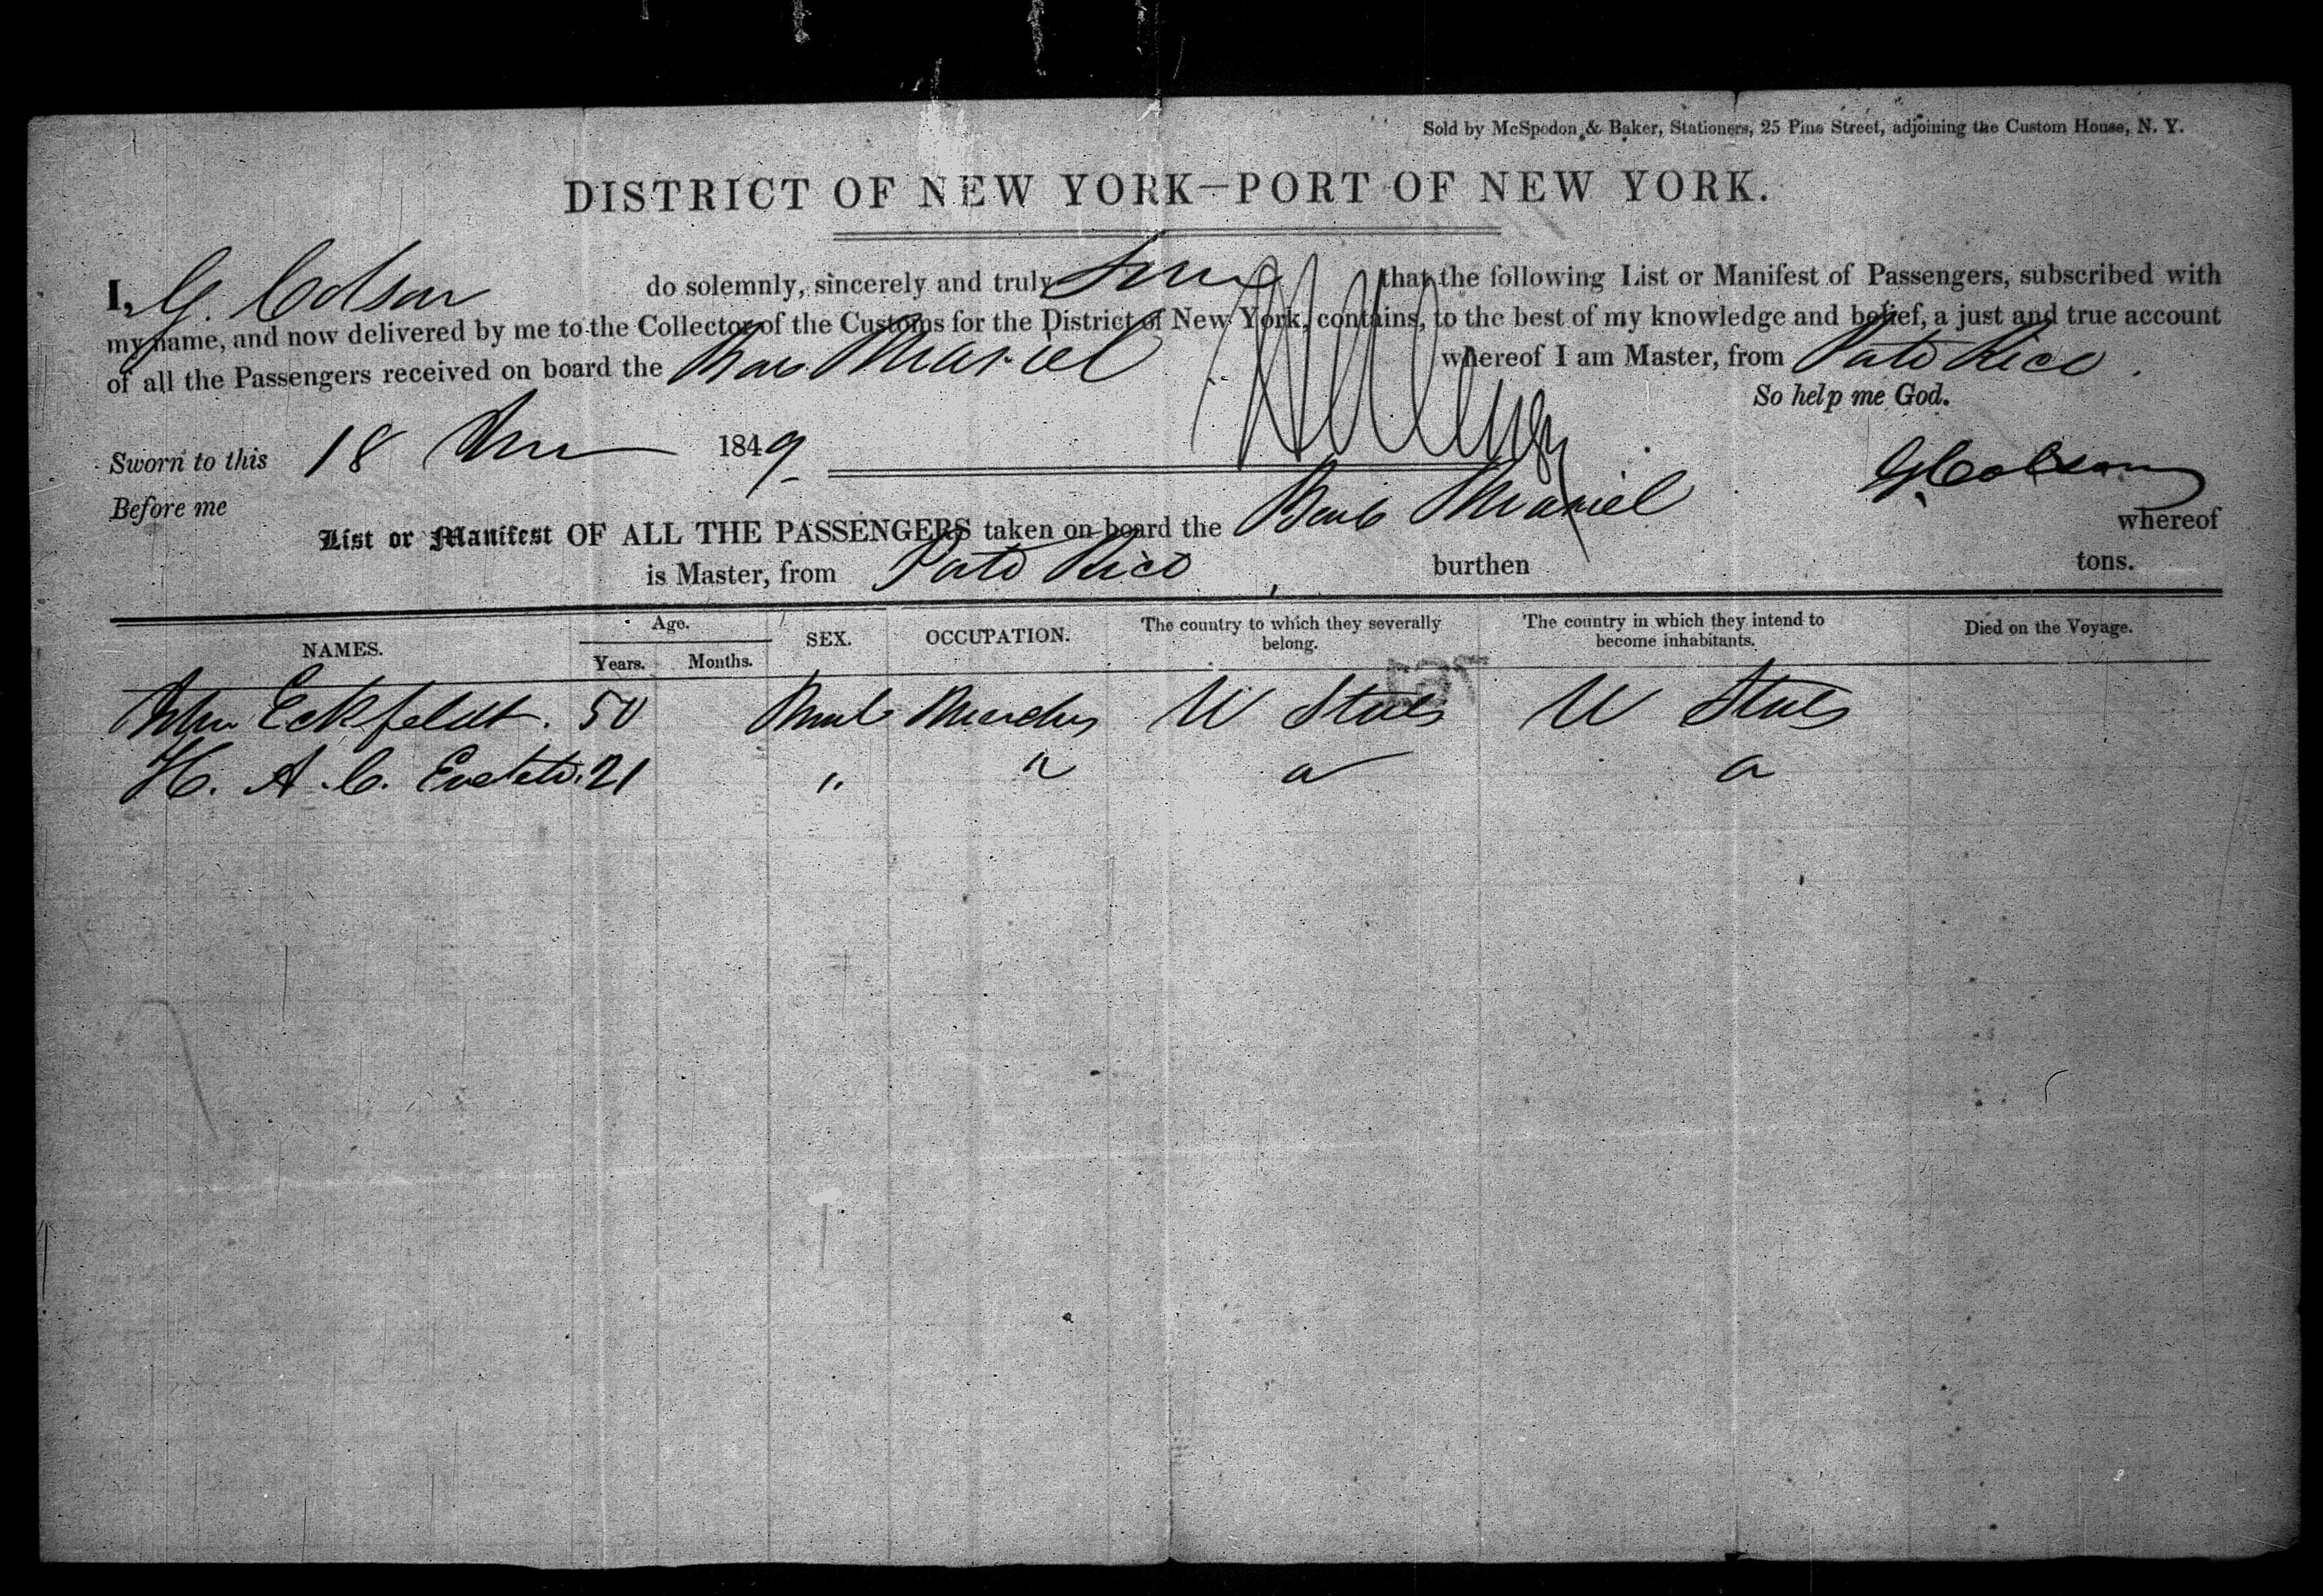 Sold by McSpedon & Baker, Stationers, 25 Pine Street, adjoining the Custom House, N. Y.
DISTRICT OF NEW YORK—PORT OF NEW YORK.
I, G. Colson do solemnly, sincerely and truly that the following List or Manifest of Passengers, subscribed with
my name, and now delivered by me to the Collector of the Customs for the District of New York, contains, to the best of my knowledge and belief, a just and true account
of all the Passengers received on board the Mariel whereof I am Master, from Porto Rico.
So help me God.
Sworn to this 18 1849
G Colson
Before me
List or Manifest OF ALL THE PASSENGERS taken on board the Bark Mariel whereof
is Master, from Porto Rico, burthen tons.
NAMES. Age. Years. Months. SEX. OCCUPATION. The country to which they severally belong. The country in which they intend to become inhabitants. Died on the Voyage.
John Eckfeldt. 50 Male U States U States
H. A. C. 21 " " " "